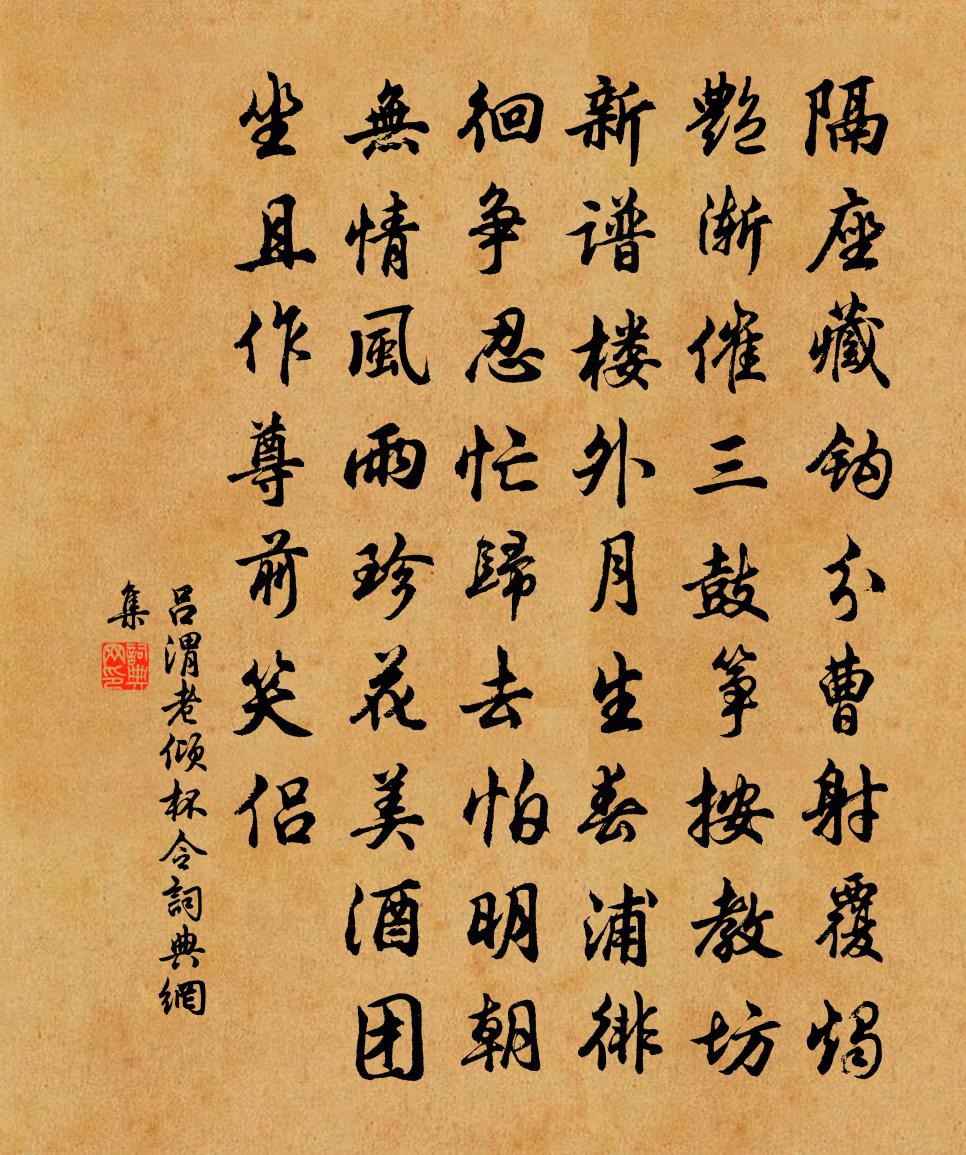 隔座藏钩分曹射覆烛
艶渐催三鼓筝按教坊
新谱楼外月生春浦徘
徊争忍忙歸去怕明朝
無情風雨珍花美酒团
坐且作尊前笑侣
吕渭老倾杯令詞典網
集
詞典网印